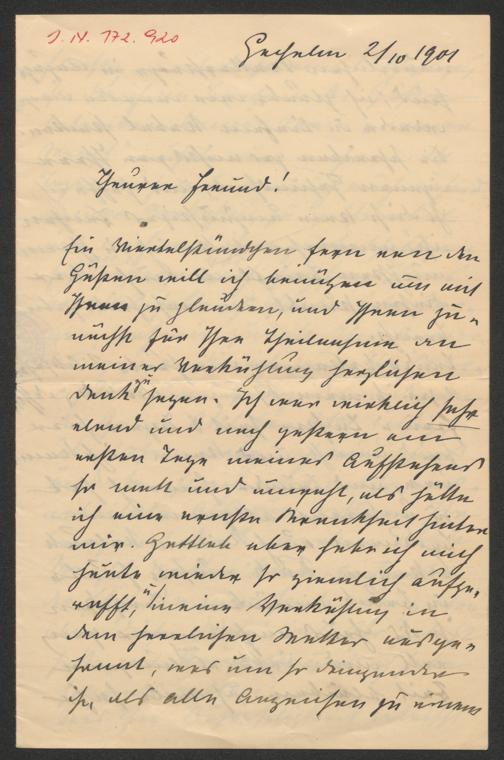 J. N. 172.920
2/10 1901
Theurer Freund!
Ein Viertelstündchen fern von den
Gästen will ich benützen um mit
Ihnen zu plaudern, und Ihnen zu-
nächst für Ihre Theilnahme an
meiner Verkühlung herzlichen
Dank zu sagen. Ich war wirklich sehr
elend und noch gestern am
ersten Tage meines Aufstehens
so matt und unwohl, als hätte
ich eine ernste Krankheit hinter
mir. Gottlob aber habe ich mich
heute wieder so ziemlich aufge-
rafft, meine Verkühlung in
dem herrlichen Wetter ausge-
sonnt, was um so dringender
ist, als alle Anzeichen zu einem